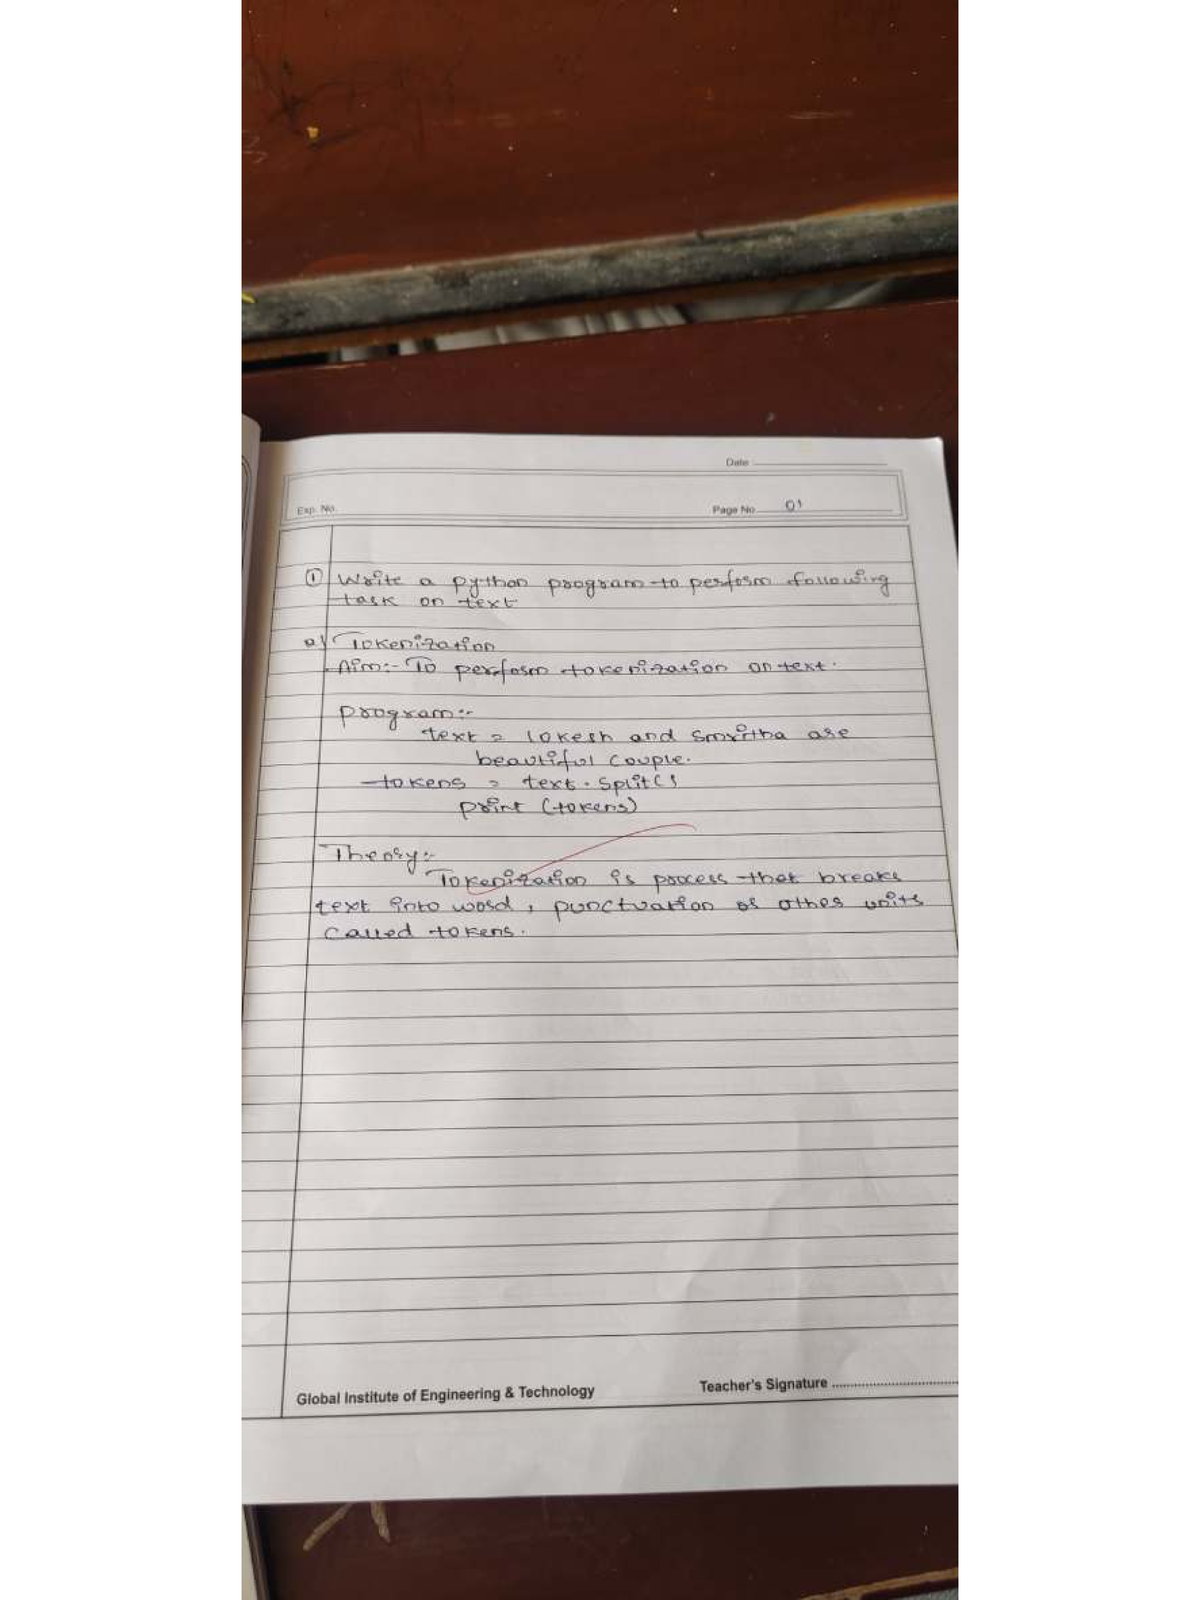 Date
Exp. No.
Page No. 01
① Write a python program to perform following
task on text
a) Tokenization
Aim:- To perform tokenization on text.
program:-
text = lokesh and Smritha are
beautiful couple.
tokens = text.split()
print (tokens)
Theory:-
Tokenization is process that breaks
text into word, punctuation or other units
called tokens.
Global Institute of Engineering & Technology
Teacher's Signature